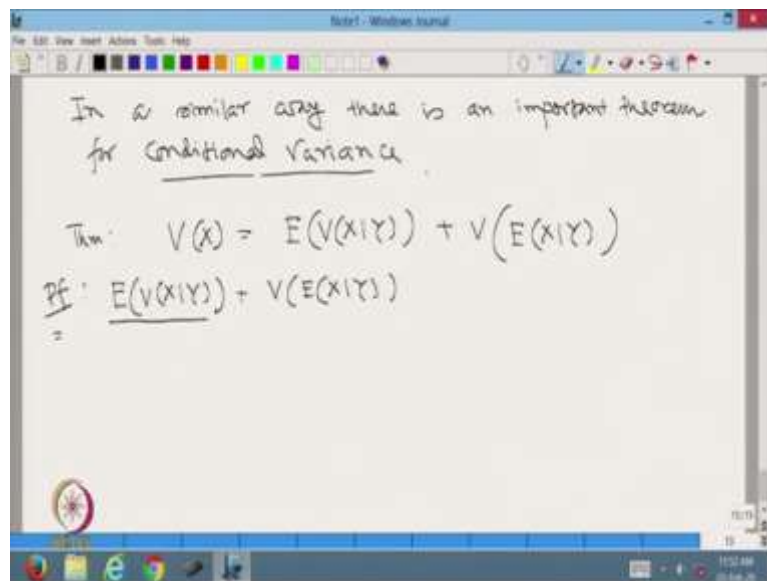 Note1 - Windows Journal
File Edit View Insert Actions Tools Help
In a similar way there is an important theorem
for conditional variance.
Thm: V(X) = E(V(X|Y)) + V(E(X|Y))
Pf: E(V(X|Y)) + V(E(X|Y))
=